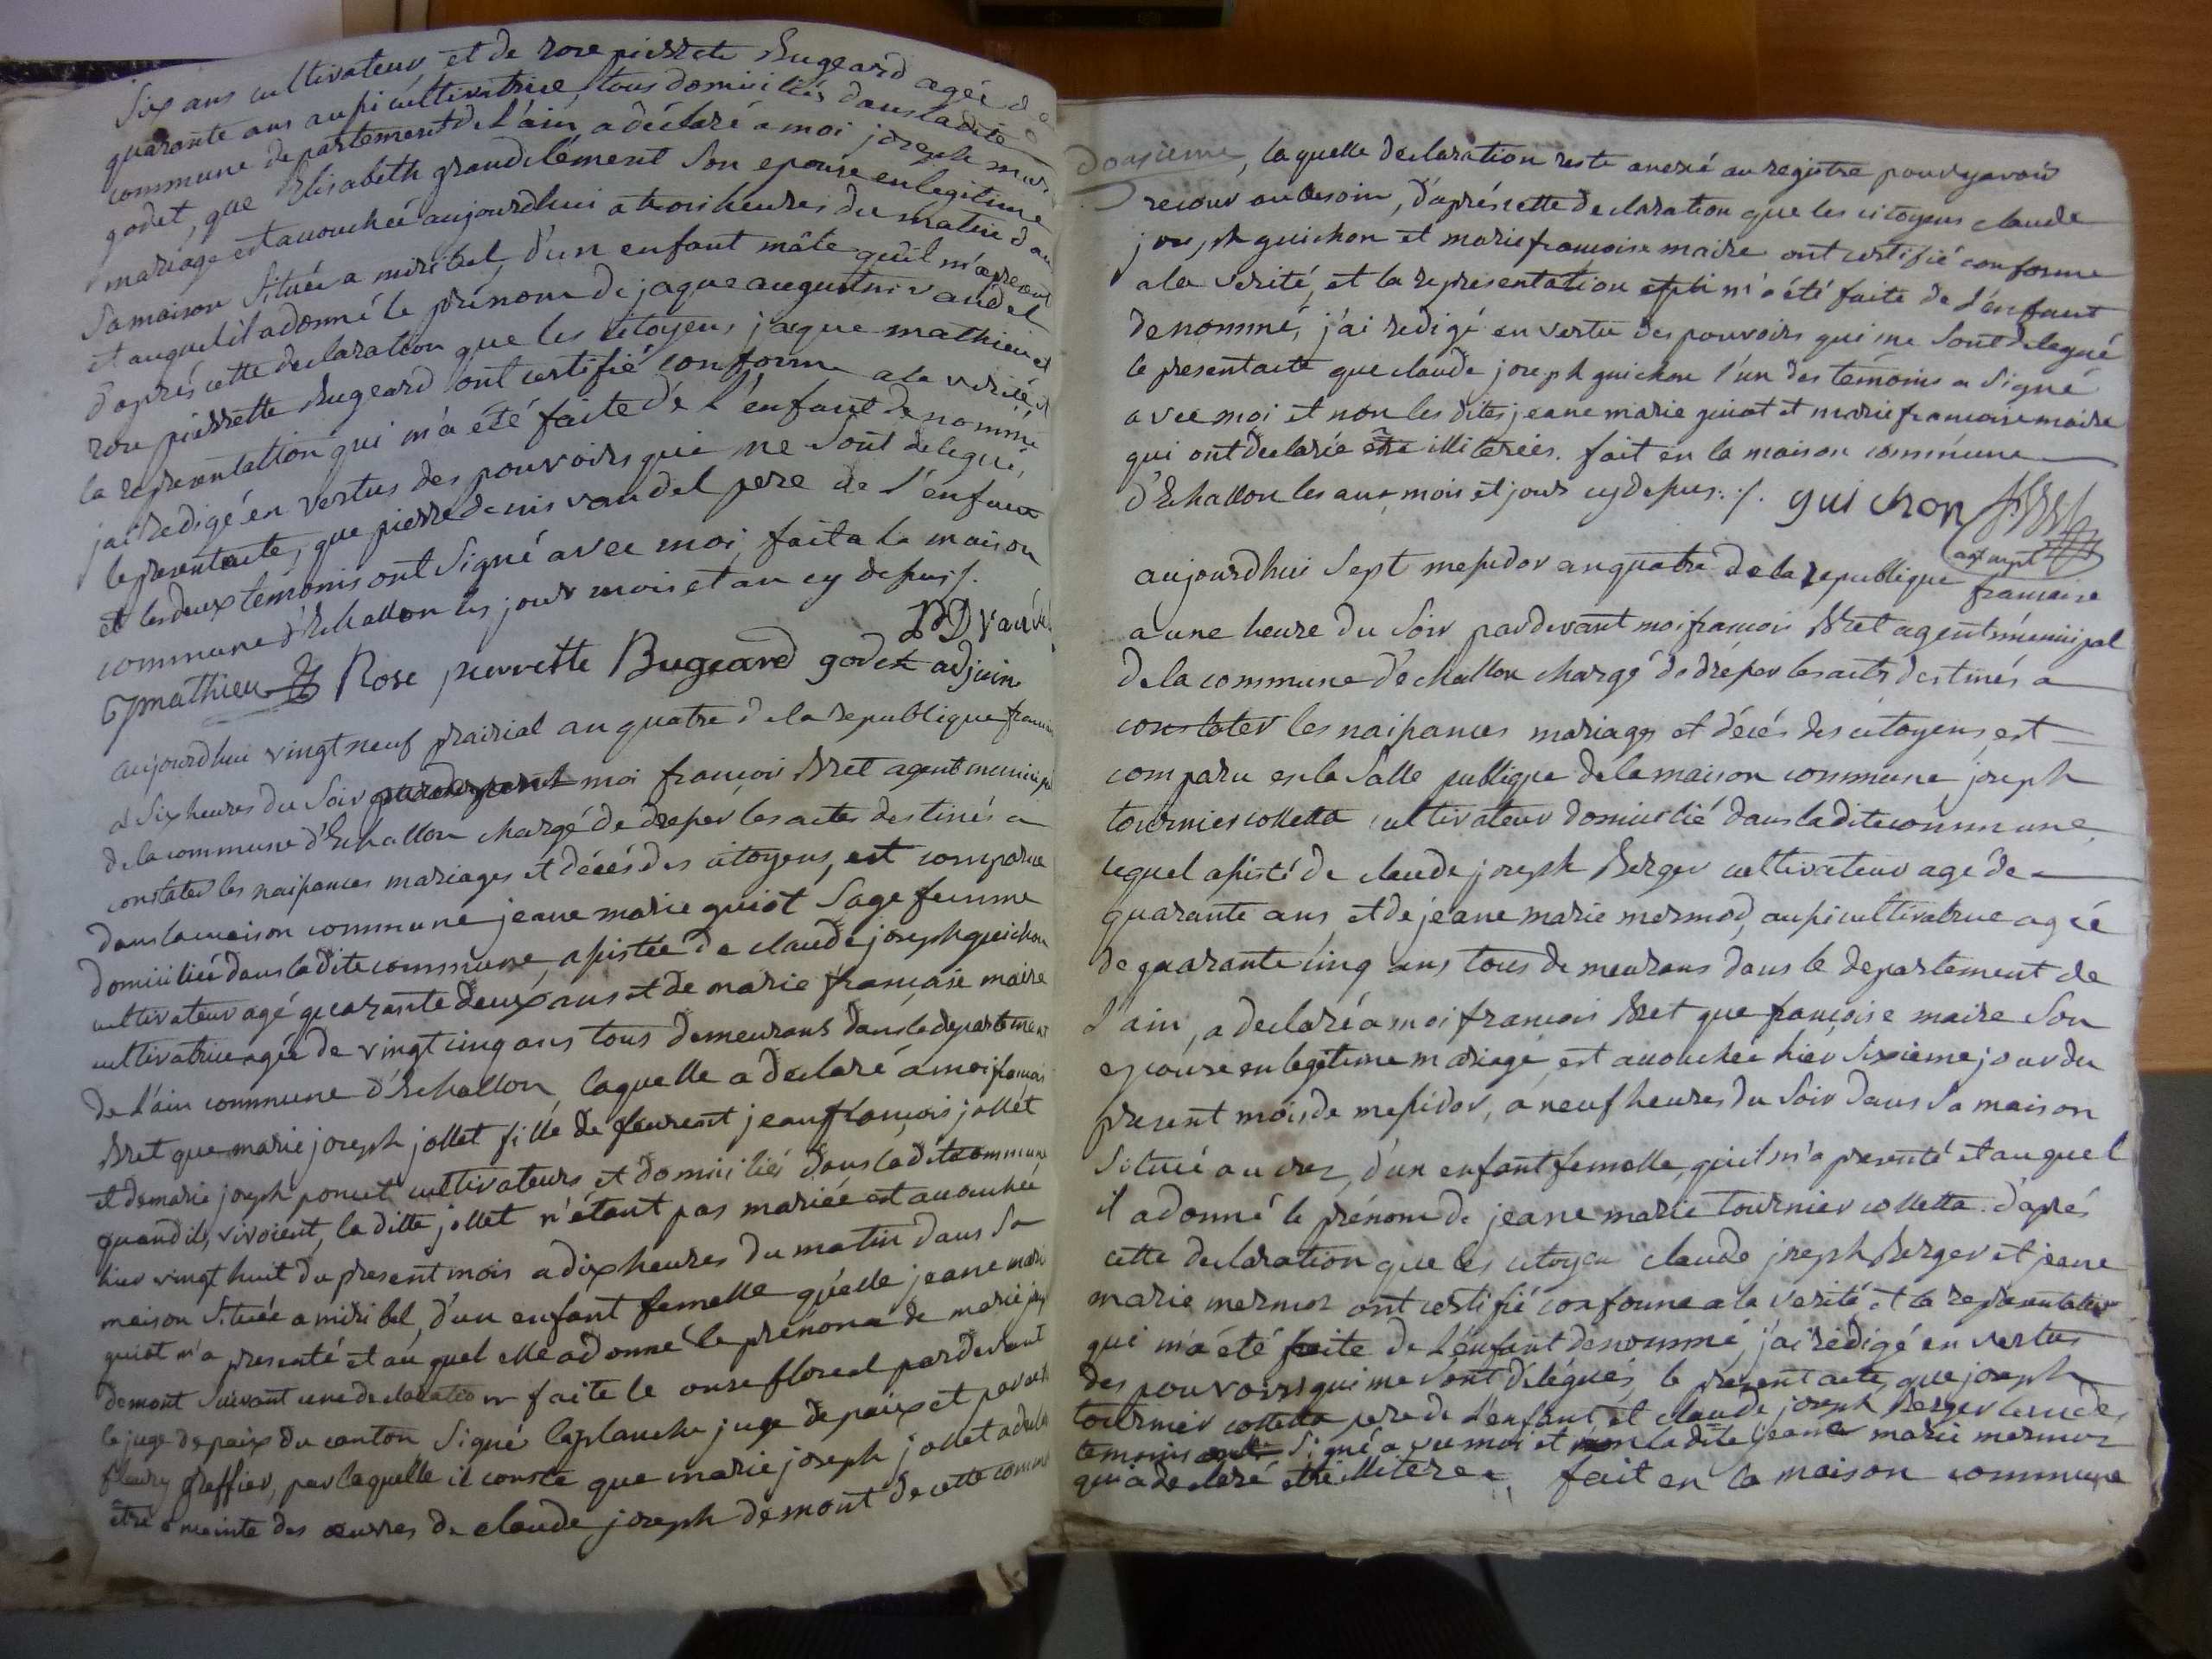 six ans cultivateur et de rose pierrete Bugeard agée de
quarante ans aussi cultivatrice, tous domiciliés dans ladite
commune departement de l'ain, a déclaré a moi joseph marie
godet, que Elisabeth grandclément son epouse en legitime
mariage est accouchée aujourdhui a trois heures du matin dans
sa maison située a miribel, d'un enfant mâle qu'il m'a presenté
et auquel il a donné le prénom de jaque augustin vandel
d'aprés cette declaration que les citoyens jaque mathieu et
rose pierrette Bugeard ont certifié conforme a la verité et
la representattion qui m'a été faite de l'enfant denommé
j'ai redigé en vertus des pouvoirs qui me sont delegués
le present acte, que pierre denis vandel pere de l'enfant
et les deux témoins ont signé avec moi, fait a la maison
commune d'Echallon les jour mois et an cy dessus /.
PD Vandel
mathieu Rose pierrette Bugeard godet adjoin
aujourdhui vingt neuf prairial an quatre de la republique francaise
a six heures du soir pardevant moi francois Bret agent municipal
de la commune d'Echallon chargé de dresser les actes destinés a
constater les naissances mariages et décés des citoyens, est comparue
dans la maison commune jeane marie guiot sage femme
domiciliée dans ladite commune, assistée de claude joseph guichon
cultivateur agé quarante deux ans et de marie francoise maire
cultivatrice agée de vingt cinq ans tous demeurans dans le departement
de l'ain commune d'Echallon, laquelle a declaré a moi francois
Bret que marie joseph jollet fille de jean francois jollet
et de marie joseph poncet cultivateurs et domiciliés dans ladite commune
quand ils vivoient, la ditte jollet n'étant pas mariée est accouchée
hier vingt huit du present mois a dix heures du matin dans sa
maison située a miribel, d'un enfant femelle qu'elle jeane marie
guiot m'a presenté et au quel elle a donné le prénom de marie joseph
demont suivant une declaration faite le onse floreal pardevant
le juge de paix du canton signé laplanche juge de paix et par
fleury greffier, par laquelle il conste que marie joseph jollet a declaré
être enceinte des œuvres de claude joseph demont de cette commune
, la quelle declaration reste anexé au registre pour y avoir
recour au besoin, d'aprés cette declaration que les citoyens claude
joseph guichon et marie francoise maire ont certifié conforme
a la verité, et la representation qui m'a été faite de l'enfant
denommé, j'ai redigé en vertu des pouvoirs qui me sont delegué
le present acte que claude joseph guichon l'un des témoins a signé
avec moi et non les dites jeane marie guiot et marie francoise maire
qui ont declarée être illiterées. fait en la maison commune
d'Echallon les an, mois et jour cy dessus /. guichon
agt mpl
aujourdhui sept messidor an quatre de la republique francaise
a une heure du soir pardevant moi francois Bret agent municipal
de la commune d'echallon chargé de dresser les acts destinés a
constater les naissances mariages et décés des citoyens, est
comparu en la salle publique de la maison commune joseph
tournier colletta cultivateur domicilié dans ladite commune
lequel assisté de claude joseph Berger cultivateur agé de
quarante ans, et de jeane marie mermod, aussi cultivatrice agée
de quarante cinq ans tous demeurans dans le departement de
l'ain, a declaré a moi francois Bret que françoise maire son
epouse en legitime mariage est accouchée hier sixieme jour du
present mois de messidor, a neuf heures du soir dans sa maison
située au crez, d'un enfant femelle, qu'il m'a presenté et auquel
il a donné le prénom de jeane marie tournier colletta. d'aprés
cette declaration que les citoyen claude joseph Berger et jeane
marie mermoz ont certifié conforme a la verité et la representation
qui m'a été faite de l'enfant denommé, j'ai redigé en vertus
des pouvoirs qui me sont délégués, le present acte, que joseph
tournier colletta pere de l'enfant et claude joseph Berger
temoins signé avec moi et non ladite jeane marie mermoz
qui a declaré etre illiterée, fait en la maison commune